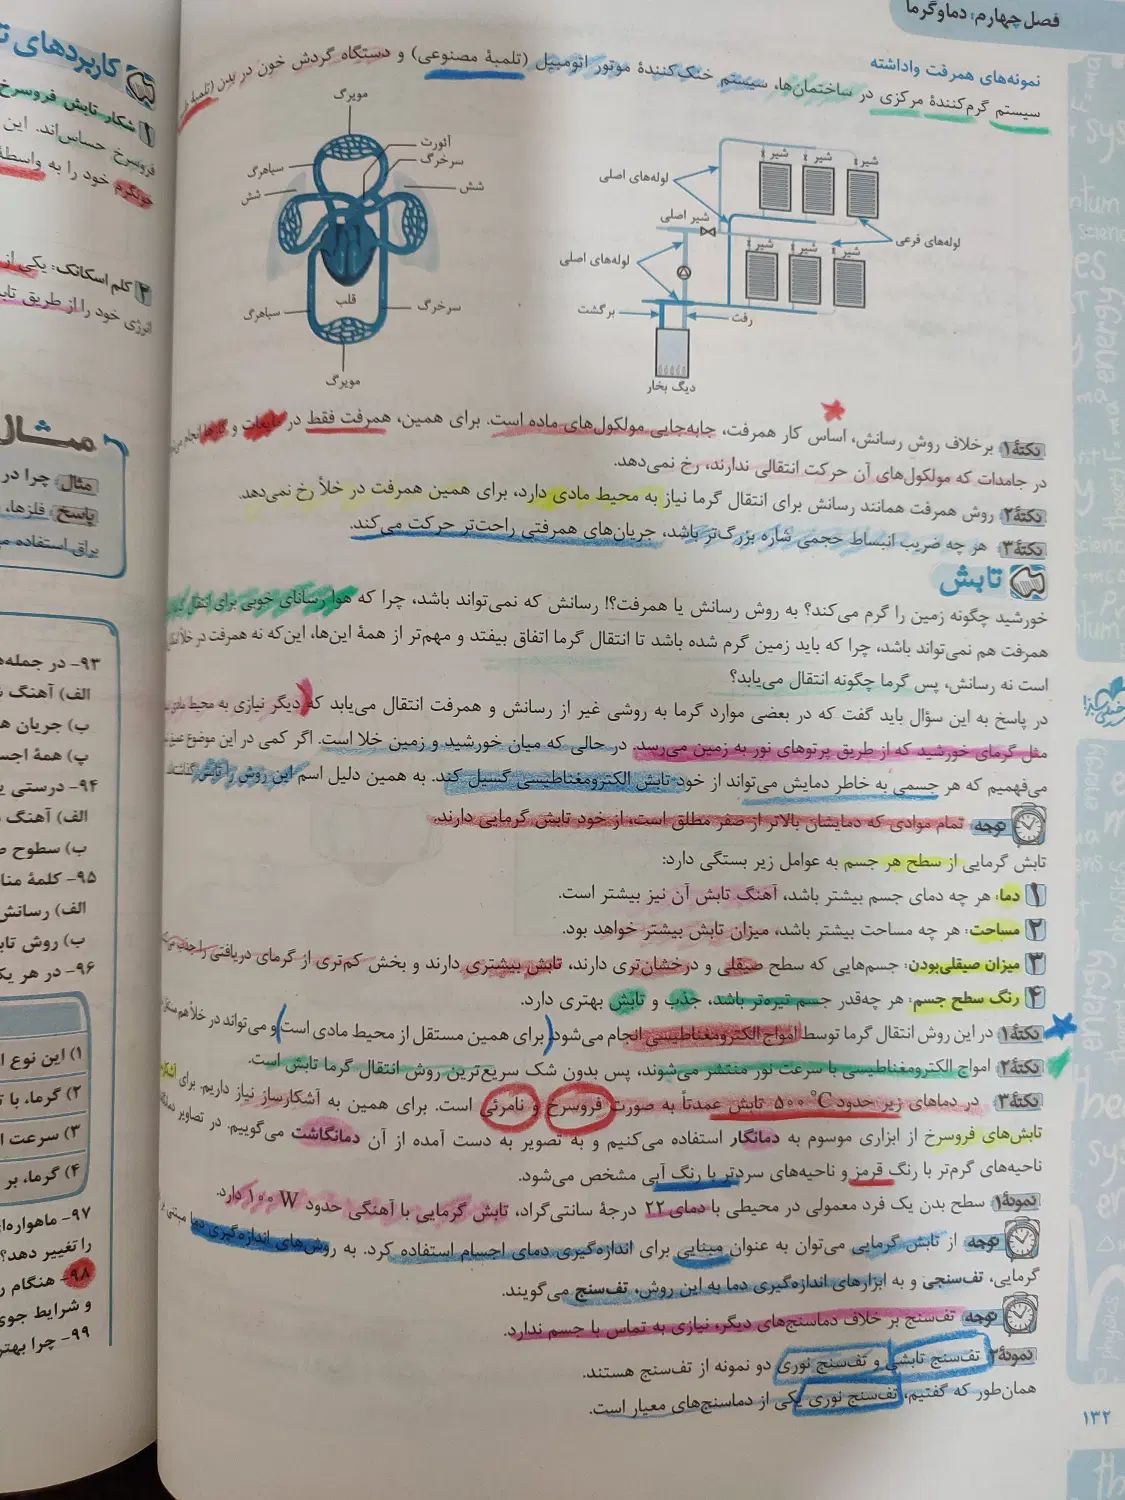 فصل چهارم: دما و گرما
نمونه‌های همرفت واداشته
سیستم گرم‌کنندهٔ مرکزی در ساختمان‌ها، سیستم خنک‌کنندهٔ موتور اتومبیل (تلمبهٔ مصنوعی) و دستگاه گردش خون در بدن (تلمبهٔ
مویرگ
آئورت
سرخرگ
سیاهرگ
شش
شش
قلب
سیاهرگ
سرخرگ
مویرگ
شیر
شیر
شیر
لوله‌های اصلی
شیر اصلی
لوله‌های فرعی
شیر
شیر
شیر
لوله‌های اصلی
برگشت
رفت
دیگ بخار
نکتهٔ ۱ برخلاف روش رسانش، اساس کار همرفت، جابه‌جایی مولکول‌های ماده است. برای همین، همرفت فقط در مایعات و گازها انجام
در جامدات که مولکول‌های آن حرکت انتقالی ندارند، رخ نمی‌دهد.
نکتهٔ ۲ روش همرفت همانند رسانش برای انتقال گرما نیاز به محیط مادی دارد، برای همین همرفت در خلأ رخ نمی‌دهد.
نکتهٔ ۳ هر چه ضریب انبساط حجمی شاره بزرگ‌تر باشد، جریان‌های همرفتی راحت‌تر حرکت می‌کند.
تابش
خورشید چگونه زمین را گرم می‌کند؟ به روش رسانش یا همرفت؟! رسانش که نمی‌تواند باشد، چرا که هوا رسانای خوبی برای انتقال
همرفت هم نمی‌تواند باشد، چرا که باید زمین گرم شده باشد تا انتقال گرما اتفاق بیفتد و مهم‌تر از همهٔ این‌ها، این‌که نه همرفت در خلأ
است نه رسانش، پس گرما چگونه انتقال می‌یابد؟
در پاسخ به این سؤال باید گفت که در بعضی موارد گرما به روشی غیر از رسانش و همرفت انتقال می‌یابد که دیگر نیازی به محیط مادی
مثل گرمای خورشید که از طریق پرتوهای نور به زمین می‌رسد. در حالی که میان خورشید و زمین خلا است. اگر کمی در این موضوع عمیق
می‌فهمیم که هر جسمی به خاطر دمایش می‌تواند از خود تابش الکترومغناطیسی گسیل کند. به همین دلیل اسم این روش را تابش
توجه تمام موادی که دمایشان بالاتر از صفر مطلق است، از خود تابش گرمایی دارند.
تابش گرمایی از سطح هر جسم به عوامل زیر بستگی دارد:
۱ دما: هر چه دمای جسم بیشتر باشد، آهنگ تابش آن نیز بیشتر است.
۲ مساحت: هر چه مساحت بیشتر باشد، میزان تابش بیشتر خواهد بود.
۳ میزان صیقلی‌بودن: جسم‌هایی که سطح صیقلی و درخشان‌تری دارند، تابش بیشتری دارند و بخش کم‌تری از گرمای دریافتی را جذب
۴ رنگ سطح جسم: هر چه‌قدر جسم تیره‌تر باشد، جذب و تابش بهتری دارد.
نکتهٔ ۱ در این روش انتقال گرما توسط امواج الکترومغناطیسی انجام می‌شود (برای همین مستقل از محیط مادی است) و می‌تواند در خلأ هم
نکتهٔ ۲ امواج الکترومغناطیسی با سرعت نور منتشر می‌شوند، پس بدون شک سریع‌ترین روش انتقال گرما تابش است.
نکتهٔ ۳ در دماهای زیر حدود ۵۰۰ °C تابش عمدتاً به صورت فروسرخ و نامرئی است. برای همین به آشکارساز نیاز داریم. برای
تابش‌های فروسرخ از ابزاری موسوم به دمانگار استفاده می‌کنیم و به تصویر به دست آمده از آن دمانگاشت می‌گوییم. در تصاویر
ناحیه‌های گرم‌تر با رنگ قرمز و ناحیه‌های سردتر با رنگ آبی مشخص می‌شود.
نمونهٔ ۱ سطح بدن یک فرد معمولی در محیطی با دمای ۲۲ درجهٔ سانتی‌گراد، تابش گرمایی با آهنگی حدود ۱۰۰ W دارد.
توجه از تابش گرمایی می‌توان به عنوان مبنایی برای اندازه‌گیری دمای اجسام استفاده کرد. به روش‌های اندازه‌گیری دما مبتنی بر
گرمایی، تف‌سنجی و به ابزارهای اندازه‌گیری دما به این روش، تف‌سنج می‌گویند.
توجه تف‌سنج بر خلاف دماسنج‌های دیگر، نیازی به تماس با جسم ندارد.
نمونهٔ ۲ تف‌سنج تابشی و تف‌سنج نوری دو نمونه از تف‌سنج هستند.
همان‌طور که گفتیم، تف‌سنج نوری یکی از دماسنج‌های معیار است.
۱۳۲
کاربردهای
۱ شکار تابش فروسرخ
فروسرخ حساس‌اند. این
خونگرم خود را به واسطهٔ
۲ کلم اسکانک: یکی از
انرژی خود را از طریق
مثال
مثال چرا در
پاسخ فلزها،
براق استفاده
۹۳- در جمله‌
الف) آهنگ
ب) جریان
پ) همهٔ
۹۴- درستی
الف) آهنگ
ب) سطوح
۹۵- کلمهٔ
الف) رسانش
ب) روش
۹۶- در هر
۱) این نوع
۲) گرما، با
۳) سرعت
۴) گرما، بر
۹۷-
را تغییر دهد؟
۹۸- هنگام
و شرایط
۹۹- چرا